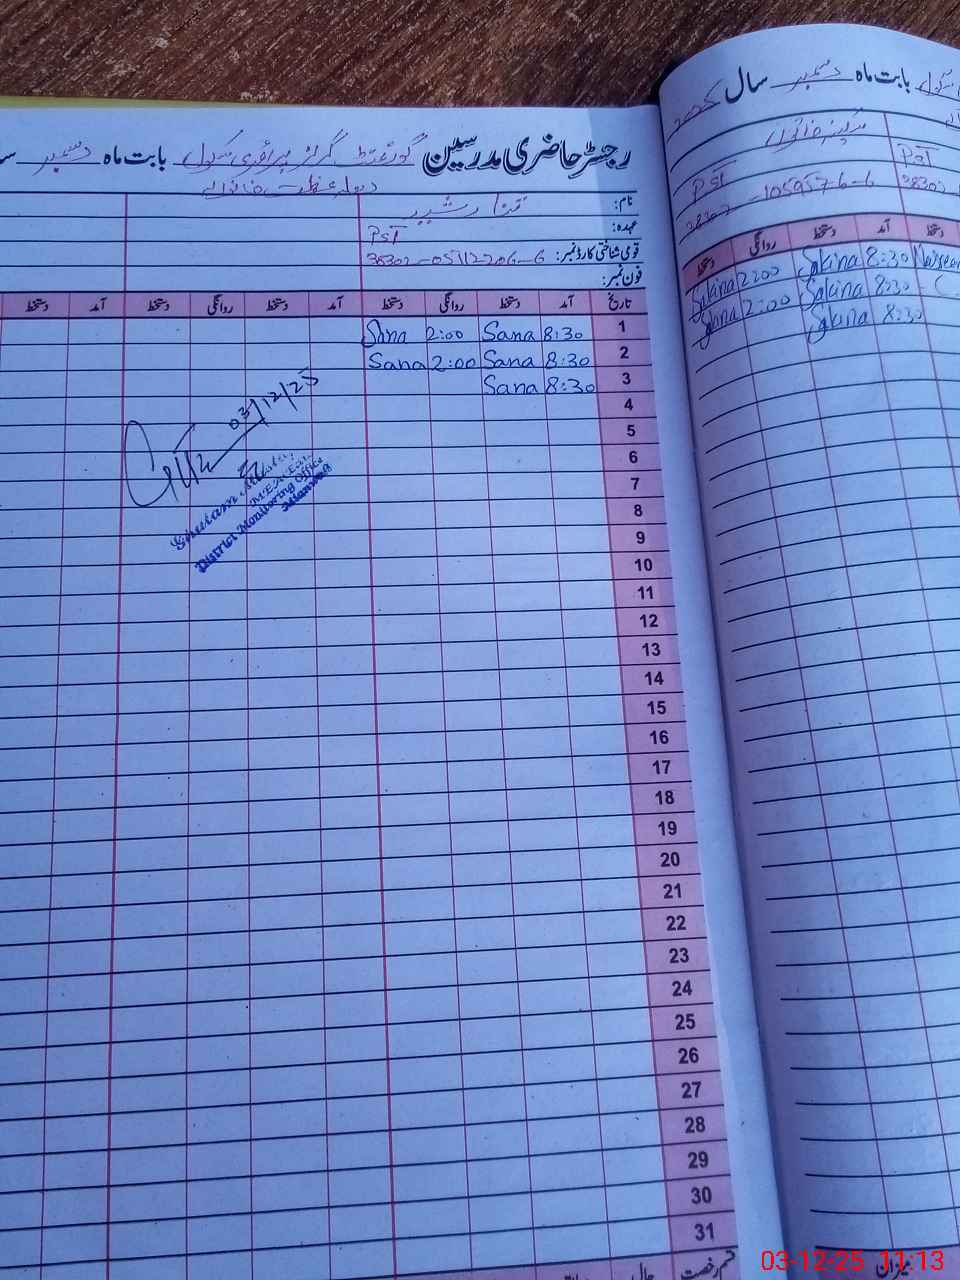 رجسٹر حاضری مدرسین گورنمنٹ گرلز پرائمری سکول بابت ماہ دسمبر
نام:
عہدہ: PST
قومی شناختی کارڈ نمبر: 38302-05112206-6
فون نمبر:
تاریخ آمد دستخط روانگی دستخط آمد دستخط روانگی دستخط آمد دستخط
1 8:30 Sana 2:00 Sana
2 8:30 Sana 2:00 Sana
3 8:30 Sana
4
5
6
7
8
9
10
11
12
13
14
15
16
17
18
19
20
21
22
23
24
25
26
27
28
29
30
31
قسم رخصت
03/12/25
Ghulam
MEA
District Monitoring Office
Mianwali
بابت ماہ دسمبر سال
سکینہ خاتون
PST PST
38302-1059576-6 38302
آمد دستخط روانگی دستخط
8:30 Sakina 2:00 Sakina
8:30 Sakina 2:00 Sakina
8:30 Sakina
میزان
03-12-25 11:13